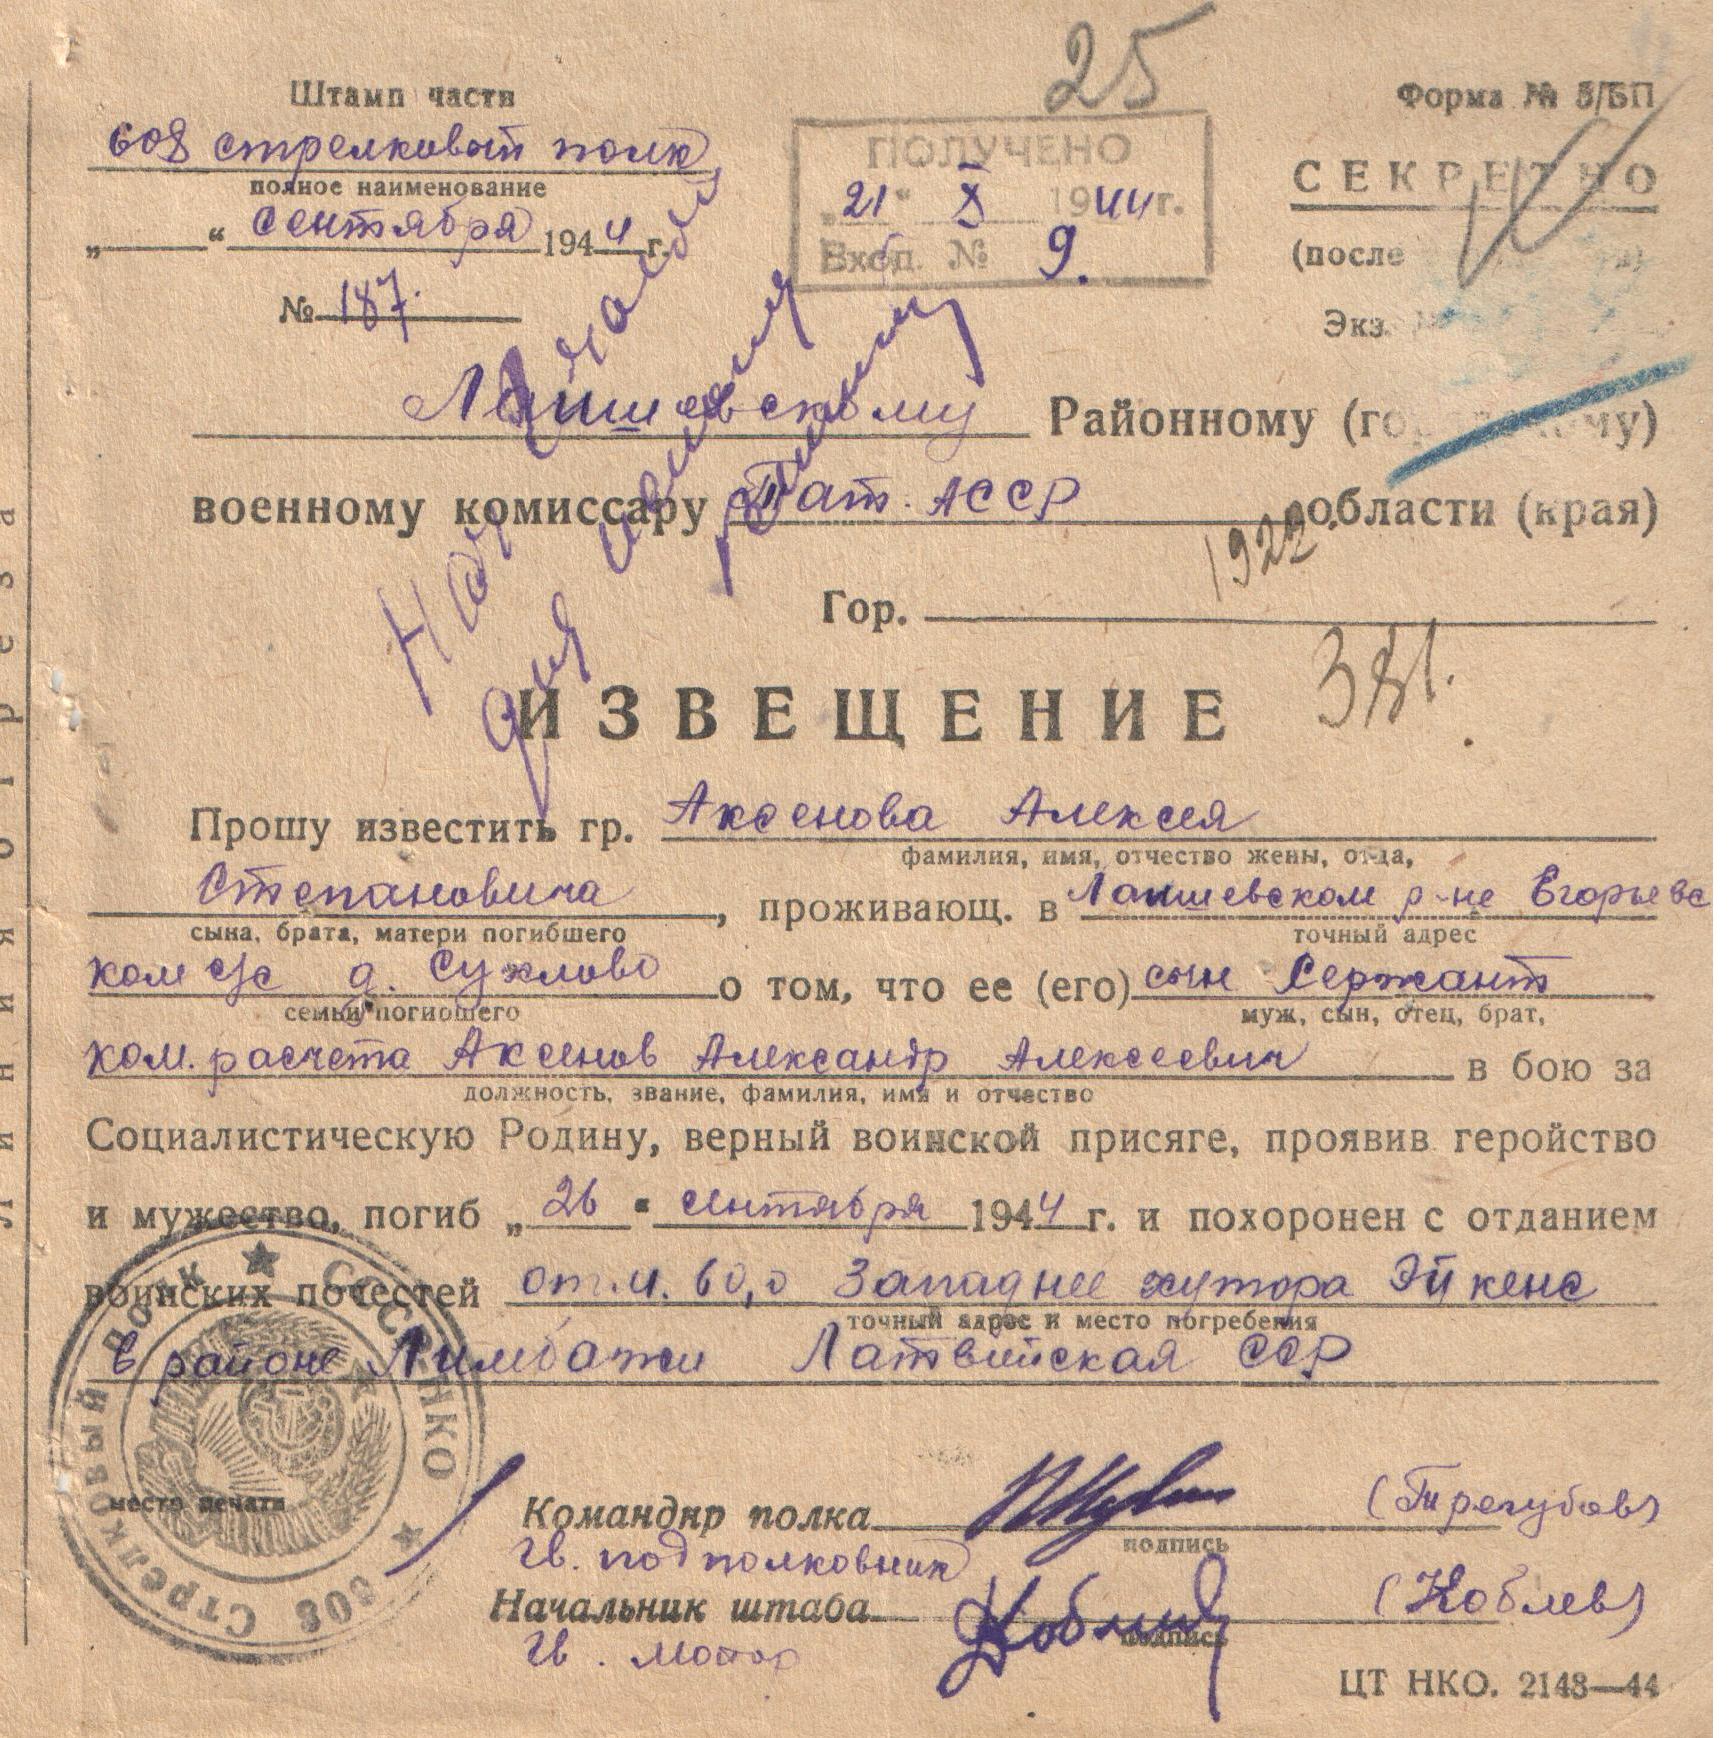 25
Штамп части
Форма № 5/БП
608 стрелковый полк
полное наименование
ПОЛУЧЕНО
„21“ X 1944 г.
Вход. № 9.
СЕКРЕТНО
„ “ сентября 1944 г.
(после
№ 187.
Экз.
Лаишевскому Районному (го му)
военному комиссару Тат. АССР области (края)
1922.
Гор.
381.
Нач
для
ИЗВЕЩЕНИЕ
Прошу известить гр. Аксенова Алексея
фамилия, имя, отчество жены, отца,
Степановича, проживающ. в Лаишевском р-не Егорьевс
сына, брата, матери погибшего
точный адрес
ком с/с д. Сухлово о том, что ее (его) сын Сержант
семьи погибшего
муж, сын, отец, брат,
ком. расчета Аксенов Александр Алексеевич в бою за
должность, звание, фамилия, имя и отчество
Социалистическую Родину, верный воинской присяге, проявив геройство
и мужество, погиб „26“ сентября 1944 г. и похоронен с отданием
воинских почестей отм. 60,0 Западнее хутора Эйкенс
точный адрес и место погребения
в районе Лимбажи Латвийская ССР
место печати
608 Стрелковый полк ★ СССР НКО ★
Командир полка (Трегубов)
подпись
Гв. подполковник
Начальник штаба (Коблев)
подпись
Гв. майор
ЦТ НКО. 2143—44
Линия отреза